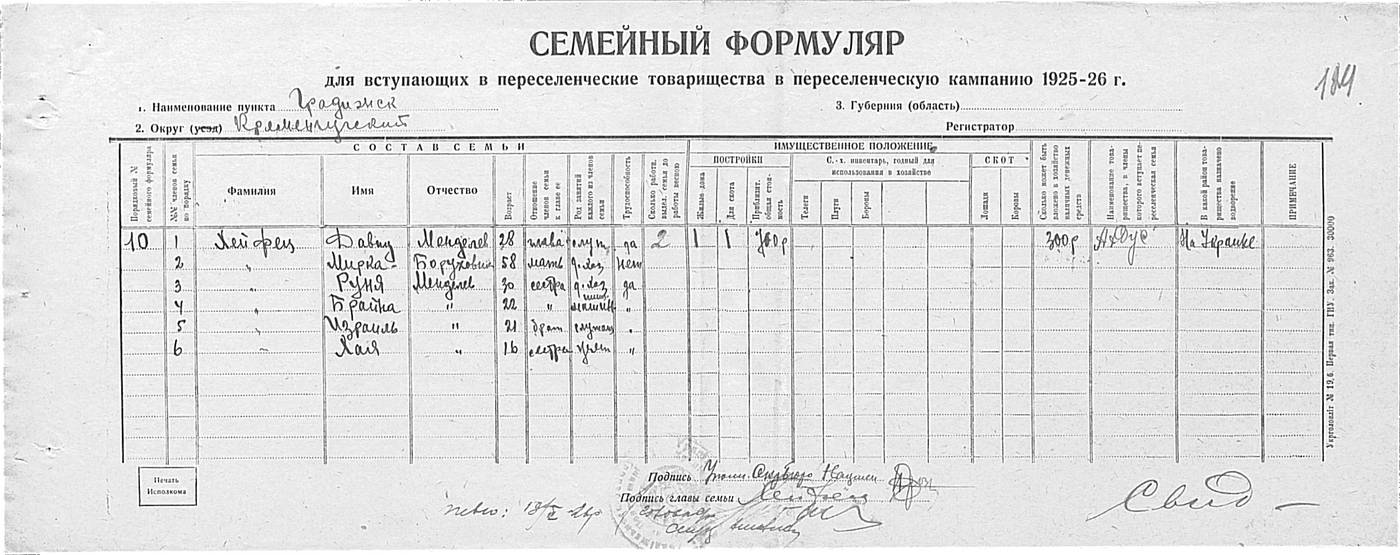 СЕМЕЙНЫЙ ФОРМУЛЯР
для вступающих в переселенческие товарищества в переселенческую кампанию 1925-26 г.
184
1. Наименование пункта Градижск
3. Губерния (область)
2. Округ (уезд) Кременчугский
Регистратор
СОСТАВ СЕМЬИ
ИМУЩЕСТВЕННОЕ ПОЛОЖЕНИЕ
ПОСТРОЙКИ
С.-х. инвентарь, годный для использования в хозяйстве
СКОТ
Порядковый № семейного формуляра
№№ членов семьи по порядку
Фамилия
Имя
Отчество
Возраст
Отношение членов семьи к главе ее
Род занятий каждого из членов семьи
Трудоспособность
Сколько работн. выдел. семья до работы весною
Жилые дома
Для скота
Приблизит. общая стоимость
Телеги
Плуги
Бороны
Лошади
Коровы
Сколько может быть вложено в хозяйство наличных денежных средств
Наименование товарищества, в члены которого вступает переселенческая семья
В какой район товарищества назначено водворение
ПРИМЕЧАНИЕ
10 1 Хейфец Давид Менделев 28 глава служ да 2 1 1 700р 300р На Украине
2 " Мирка Боруховна 58 мать д. хоз нет
3 " Руня Менделев 30 сестра д. хоз да
4 " Брайна " 22 " "
5 " Израиль " 21 брат служащ "
6 " Хая " 16 сестра "
Укрголовліт № 19,6. Первая тип. ГПУ. Зак. № 963. 30000
Печать Исполкома
Подпись
Подпись главы семьи Хейфец